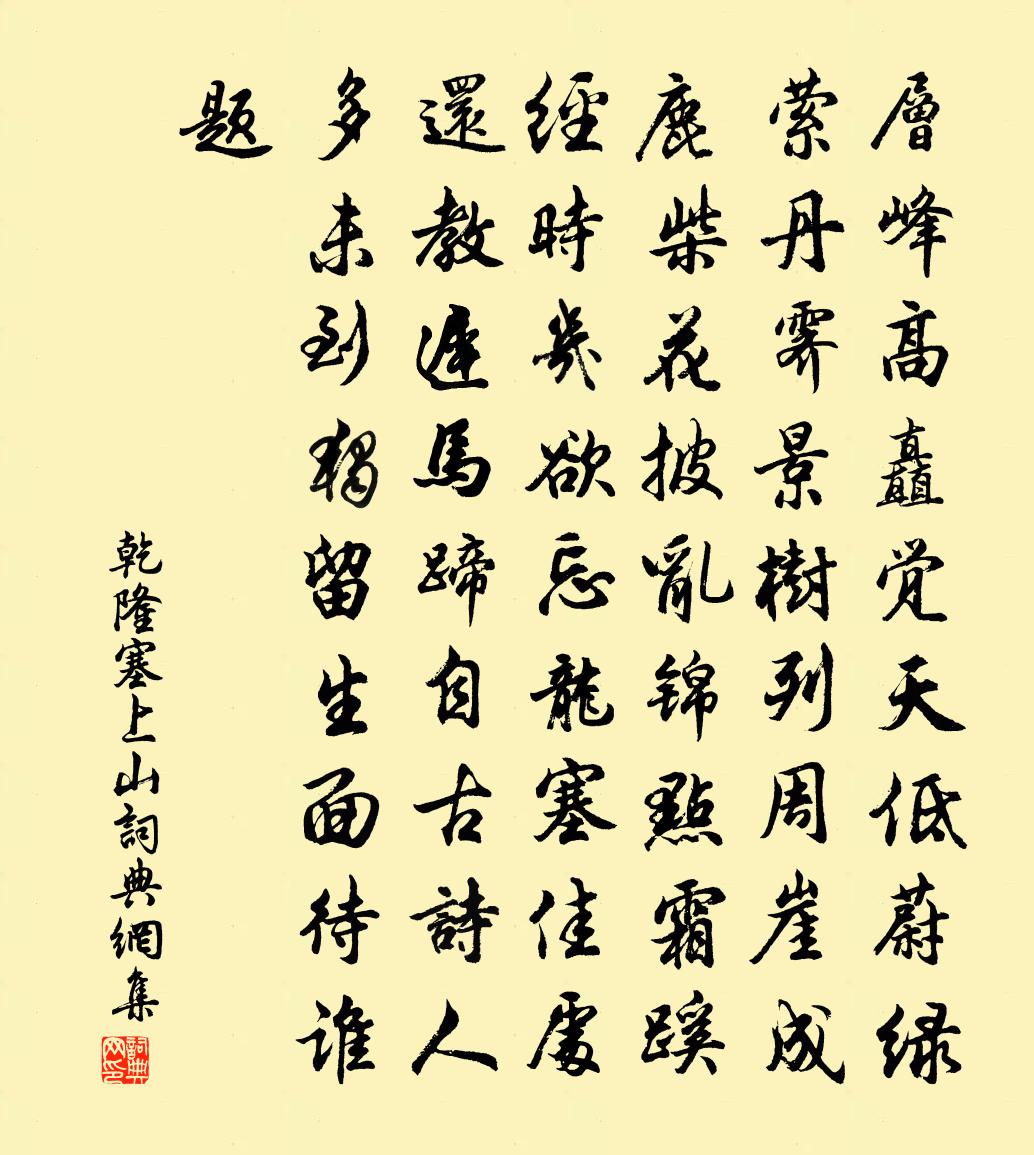 層峰高矗覚天低蔚緑
縈丹霽景樹列周崖成
鹿柴花披亂錦點霜蹊
經時幾欲忘龍塞佳處
還教遲馬蹄自古詩人
多未到獨留生面待誰
题
乾隆塞上山詞典網集
詞典网印